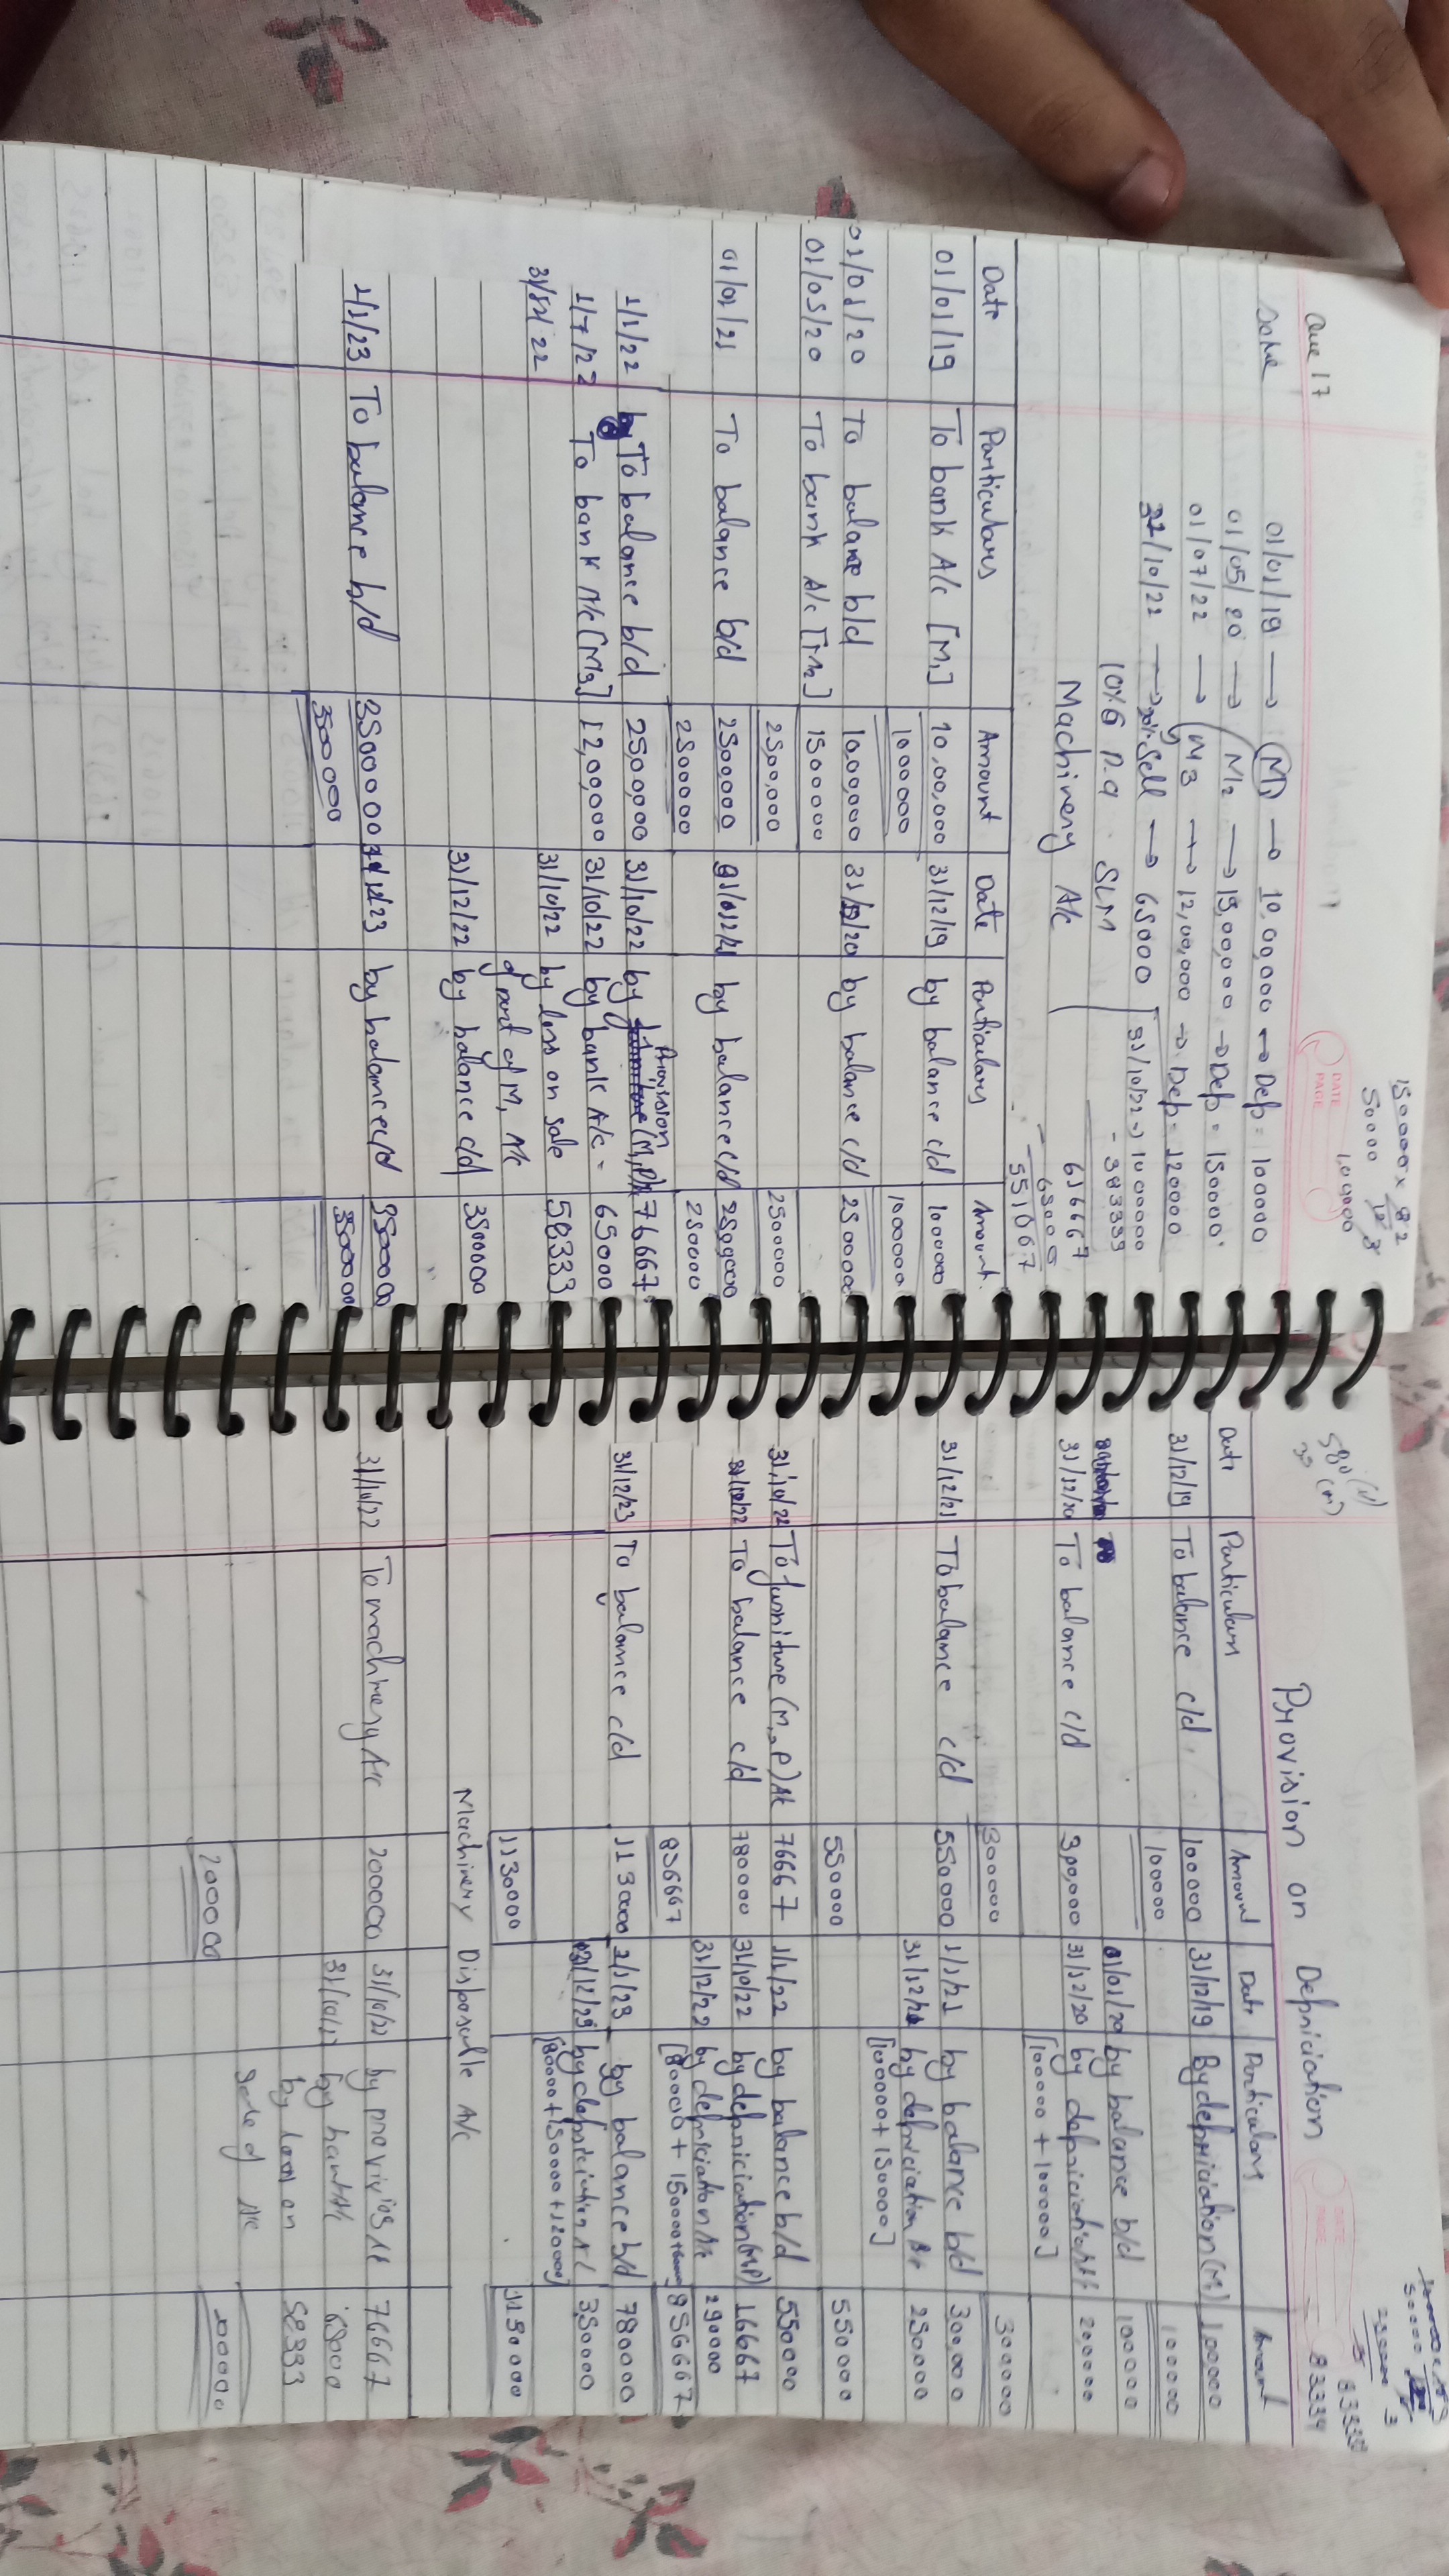 Que 17
150000 × 8/12
50000
100000
DATE
PAGE
Solve 01/01/19 → (M1) → 10,00,000 → Dep = 100000
01/05/20 → M2 → 15,00,000 → Dep = 150000
01/07/22 → M3 → 12,00,000 → Dep = 120000
31/10/22 → 20% Sell → 65000 [31/10/22 → 1000000
10% @ P.a. SLM - 383333
616667
Machinery A/c - 65000
551667
Date Particulars Amount Date Particulars Amount
01/01/19 To bank A/c [M1] 10,00,000 31/12/19 by balance c/d 1000000
1000000 1000000
01/01/20 To balance b/d 1000000 31/12/20 by balance c/d 2500000
01/05/20 To bank A/c [M2] 1500000
2500,000 2500000
01/01/21 To balance b/d 2500000 31/12/21 by balance c/d 2500000
2500000 250000
1/1/22 To balance b/d 2500,000 31/10/22 by Provision (M1P) A/c 76667
1/7/22 To bank A/c [M3] 12,00,000 31/10/22 by bank A/c - 65000
31/12/22 31/10/22 by loss on sale 58333
of part of M1 A/c
31/12/22 by balance c/d 3500000
1/1/23 To balance b/d 3500000 31/12/23 by balance c/d 3500000
3500000 3500000
580 (d)
Provision on Depriciation
DATE
PAGE
83334
Date Particulars Amount Date Particulars Amount
31/12/19 To balance c/d 100000 31/12/19 By depriciation (M1) 100000
100000 100000
01/01/20 by balance b/d 100000
31/12/20 To balance c/d 300,000 31/12/20 by depriciation A/c 200000
[100000 + 100000]
300000 300000
31/12/21 To balance c/d 550000 1/1/21 by balance b/d 300,000
31/12/21 by depriciation A/c 250000
[100000 + 150000]
550000 550000
31/10/22 To furniture (M1P) A/c 76667 1/1/22 by balance b/d 550000
31/12/22 To balance c/d 780000 31/10/22 by depriciation (M1P) 16667
31/12/22 by depriciation A/c 290000
856667 [80000 + 150000 + 60000] 856667
31/12/23 To balance c/d 1130000 1/1/23 by balance b/d 780000
31/12/23 by depriciation A/c 350000
[80000 + 150000 + 120000]
1130000 1130000
Machinery Disposalle A/c
31/10/22 To machinery A/c 200000 31/10/22 by provision A/c 76667
31/10/22 by bank A/c 65000
by loss on 58333
sale of A/c
200000 200000